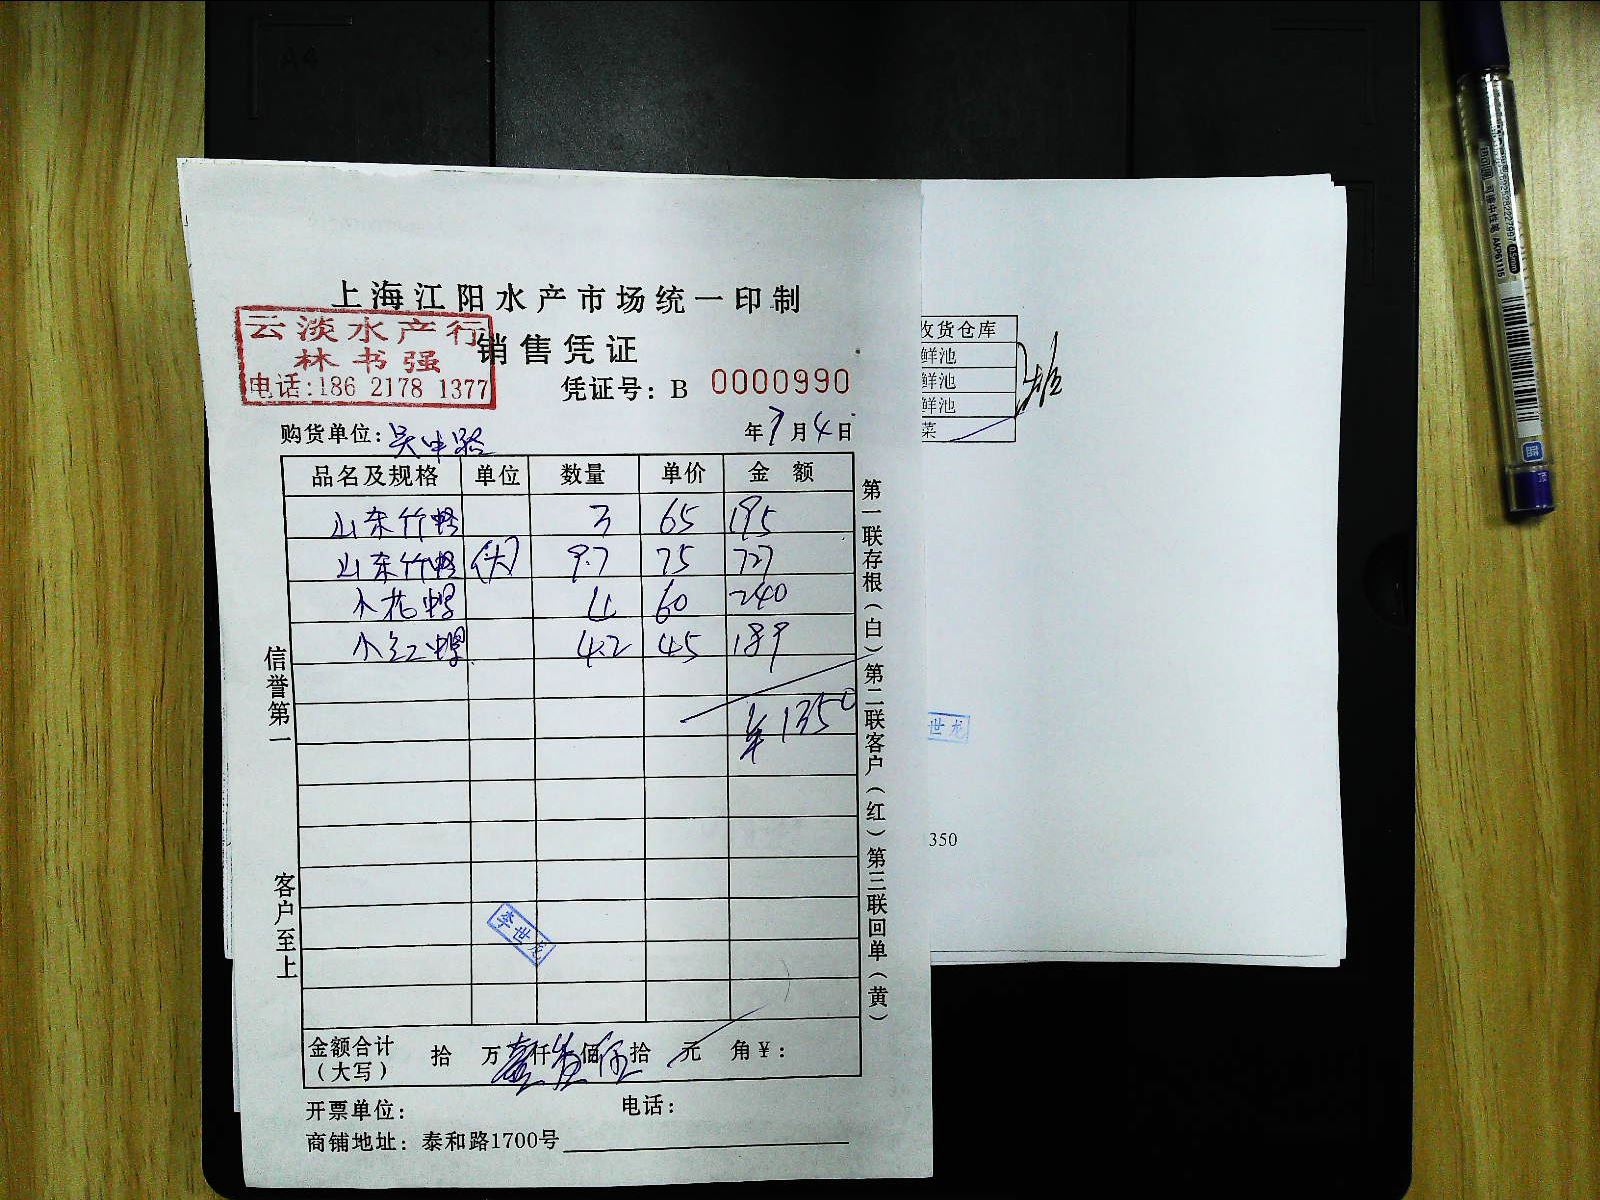 A4
上海江阳水产市场统一印制
云淡水产行
林书强
电话:186 2178 1377
销售凭证
凭证号: B 0000990
购货单位: 吴中路
年7月4日
品名及规格 单位 数量 单价 金额
山东竹蛏 3 65 195
山东竹蛏 (大) 9.7 75 727
小花螺 4 60 240
小红螺 4.2 45 189
¥1350
信誉第一
客户至上
第一联存根(白)第二联客户(红)第三联回单(黄)
李世龙
金额合计
(大写)
拾 万 壹仟 叁佰 伍拾 元 角 ¥:
开票单位: 电话:
商铺地址: 泰和路1700号
收货仓库
鲜池
鲜池
鲜池
菜
世龙
350
0.5mm
AKP61115